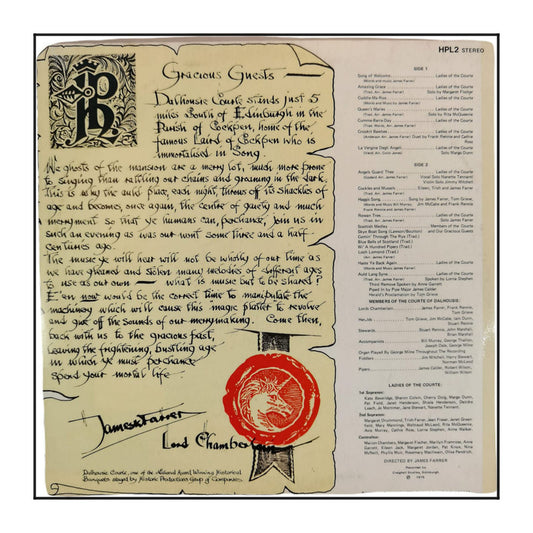 Gracious Guests —
Dalhousie Courte stands just 5
miles South of Edinburgh in the
Parish of Cockpen, home of the
famous Laird of Cockpen who is
immortalised in Song.
We ghosts of the mansion are a merry lot, much more prone
to singing than rattling our chains and groaning in the dark.
This is why the auld place, each night, throws off its shackles of
age and becomes, once again, the centre of gaiety and much
merryment so that ye humans can, perchance, join us in
such an evening as was our wont some three and a half
Centuries ago.
The music ye will hear will not be wholly of our time as
we have gleaned and stolen many melodies of different ages
to use as out own — what is music but to be shared?
E'en now would be the correct time to manipulate the
machinery which will cause this magic platter to revolve
and give off the sounds of our merrymaking. Come then,
back with us to the gracious past,
leaving the frightening, bustling age
in which we must perchance
spend your mortal life —
James Farrer
Lord Chamberlain
Dalhousie Courte, one of the National Award Winning Historical
Banquets staged by Historic Productions Group of Companies.
HPL2 STEREO
SIDE 1
Song of Welcome Ladies of the Courte
(Words and music James Farrer)
Amazing Grace Ladies of the Courte
(Trad. Arr. James Farrer) Solo by Margaret Pratige
Cuddle-Ma-Roo Ladies of the Courte
(Words and Music by James Farrer)
Queen's Maries Ladies of the Courte
(Trad. Arr. James Farrer) Solo by Rita McQueenie
Ladies of the Courte
(Trad. Arr. James Farrer)
Crookit Bawbee Ladies of the Courte
La Vergine Degli Angeli Ladies of the Courte
Solo Marge Dunn
SIDE 2
Angels Guard Thee Ladies of the Courte
(Godard Arr. James Farrer) Vocal Solo Nanette Tennant
Violin Solo Jimmy Mitchell
Cockles and Mussels Eileen, Trish and James Farrer
(Trad. Arr. James Farrer)
Haggis Song Song by James Farrer, Tom Grieve,
Jim McCabe and Frank Rennie
Rowan Tree Ladies of the Courte
(Trad. Arr. James Farrer)
Scottish Medley Members of the Courte
Skye Boat Song (Lawson/Boulton) and Our Gracious Guests
Comin' Through The Rye (Trad.)
Blue Bells of Scotland (Trad.)
Wi' A Hundred Pipers (Trad.)
Loch Lomond (Trad.)
Haste Ye Back Again Ladies of the Courte
(Words and Music James Farrer)
Auld Lang Syne Ladies of the Courte
(Trad. Arr. James Farrer) Spoken by Lorna Stephen
Third Remove Spoken by Anne Garrett
Piped in by Pipe Major James Calder
Herald's Proclamation by Tom Grieve
MEMBERS OF THE COURTE OF DALHOUSIE:
Lords Chamberlain: James Farrer, Frank Rennie,
Tom Grieve
Heralds: Tom Grieve, Jim McCabe, Iain Dunn,
Stuart Rennie
Stewards: Stuart Rennie, John Marshall,
Brian Marshall
Accompanists: Bill Murray, George Thallon,
Joseph Dale, George Milne
Organ Played By George Milne Throughout The Recording
Fiddlers: Jim Mitchell, Harry Stewart,
Norman McLeod
Pipers: James Calder, Robert Wilson,
William Wilson
LADIES OF THE COURTE:
1st Sopranos:
2nd Sopranos:
Contraltos:
DIRECTED BY JAMES FARRER
Recorded by
Craighall Studios, Edinburgh.
℗ 1975